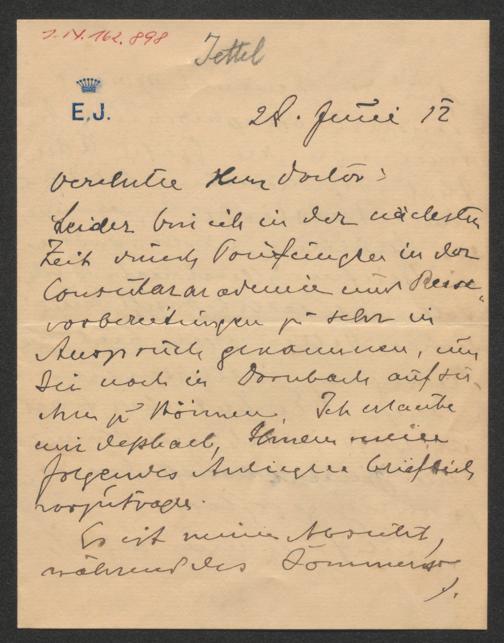 J.N. 162.898
Jettel
E.J.
28. Juni 12
Verehrter Herr Doctor!
Leider bin ich in der nächsten
Zeit durch Prüfungen in der
Consularacademie und Reise-
vorbereitungen zu sehr in
Anspruch genommen, um
Sie noch in Dornbach aufsu-
chen zu können. Ich erlaube
mir deshalb, Ihnen meine
folgendes Anliegen brieflich
vorzutragen.
Es ist meine Absicht,
während des Sommers